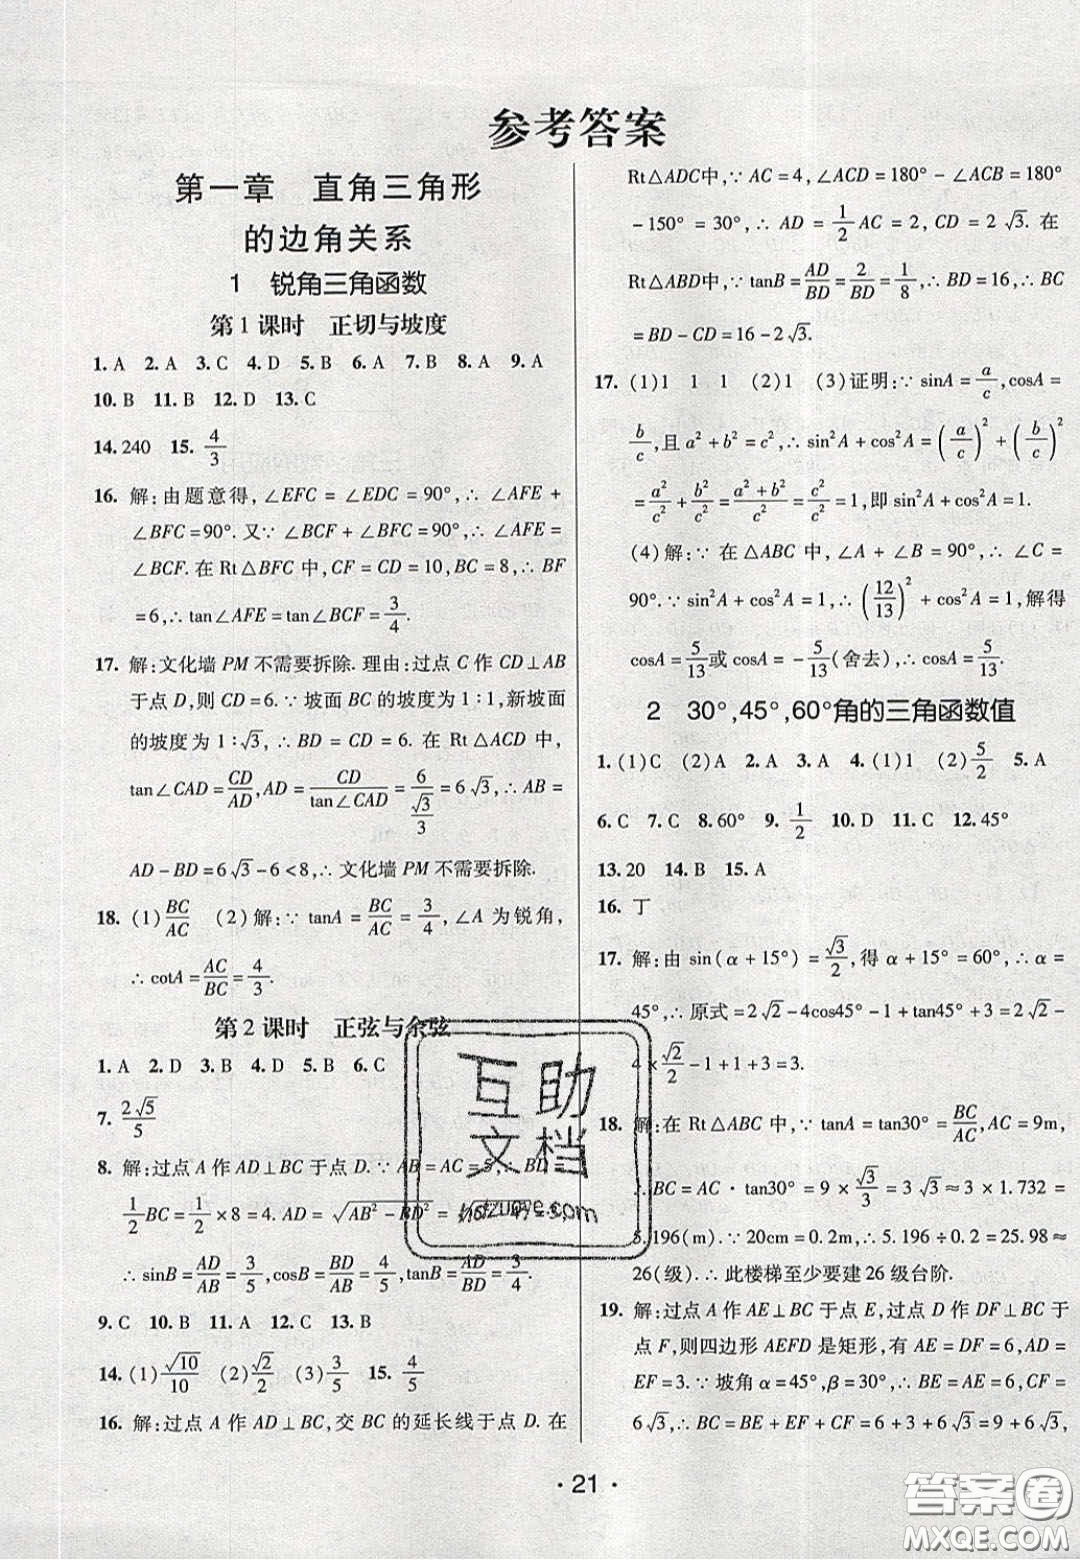 参考答案
第一章　直角三角形
的边角关系
1　锐角三角函数
第1课时　正切与坡度
1. A　2. A　3. C　4. D　5. B　6. A　7. B　8. A　9. A
10. B　11. B　12. D　13. C
14. 240　15. 4/3
16. 解:由题意得,∠EFC=∠EDC=90°,∴∠AFE+
∠BFC=90°. 又∵∠BCF+∠BFC=90°,∴∠AFE=
∠BCF. 在Rt△BFC中,CF=CD=10,BC=8,∴BF
=6,∴tan∠AFE=tan∠BCF=3/4.
17. 解:文化墙PM不需要拆除. 理由:过点C作CD⊥AB
于点D,则CD=6. ∵坡面BC的坡度为1∶1,新坡面
的坡度为1∶√3,∴BD=CD=6. 在Rt△ACD中,
tan∠CAD=CD/AD,AD=CD/tan∠CAD=6/(√3/3)=6√3,∴AB=
AD-BD=6√3-6<8,∴文化墙PM不需要拆除.
18. (1)BC/AC　(2)解:∵tanA=BC/AC=3/4,∠A为锐角,
∴cotA=AC/BC=4/3.
第2课时　正弦与余弦
1. A　2. D　3. B　4. D　5. B　6. C
7. 2√5/5
8. 解:过点A作AD⊥BC于点D. ∵AB=AC=5,∴BD=
1/2BC=1/2×8=4. AD=√(AB²-BD²)=
∴sinB=AD/AB=3/5,cosB=BD/AB=4/5,tanB=AD/BD=3/4.
9. C　10. B　11. D　12. C　13. B
14. (1)√10/10　(2)√2/2　(3)3/5　15. 4/5
16. 解:过点A作AD⊥BC,交BC的延长线于点D. 在
Rt△ADC中,∵AC=4,∠ACD=180°-∠ACB=180°
-150°=30°,∴AD=1/2AC=2,CD=2√3. 在
Rt△ABD中,∵tanB=AD/BD=2/BD=1/8,∴BD=16,∴BC
=BD-CD=16-2√3.
17. (1)1　1　1　(2)1　(3)证明:∵sinA=a/c,cosA=
b/c,且a²+b²=c²,∴sin²A+cos²A=(a/c)²+(b/c)²
=a²/c²+b²/c²=(a²+b²)/c²=c²/c²=1,即sin²A+cos²A=1.
(4)解:∵在△ABC中,∠A+∠B=90°,∴∠C=
90°. ∵sin²A+cos²A=1,∴(12/13)²+cos²A=1,解得
cosA=5/13或cosA=-5/13(舍去),∴cosA=5/13.
2　30°,45°,60°角的三角函数值
1. (1)C　(2)A　2. A　3. A　4. (1)1　(2)5/2　5. A
6. C　7. C　8. 60°　9. 1/2　10. D　11. C　12. 45°
13. 20　14. B　15. A
16. 丁
17. 解:由sin(α+15°)=√3/2,得α+15°=60°,∴α=
45°,∴原式=2√2-4cos45°-1+tan45°+3=2√2-
4×√2/2-1+1+3=3.
18. 解:在Rt△ABC中,∵tanA=tan30°=BC/AC,AC=9m,
∴BC=AC·tan30°=9×√3/3=3√3≈3×1.732=
5.196(m). ∵20cm=0.2m,∴5.196÷0.2=25.98≈
26(级). ∴此楼梯至少要建26级台阶.
19. 解:过点A作AE⊥BC于点E,过点D作DF⊥BC于
点F,则四边形AEFD是矩形,有AE=DF=6,AD=
EF=3. ∵坡角α=45°,β=30°,∴BE=AE=6,CF=
6√3,∴BC=BE+EF+CF=6+3+6√3=9+6√3,
·21·
互助
文档
答案圈
MXQE.COM